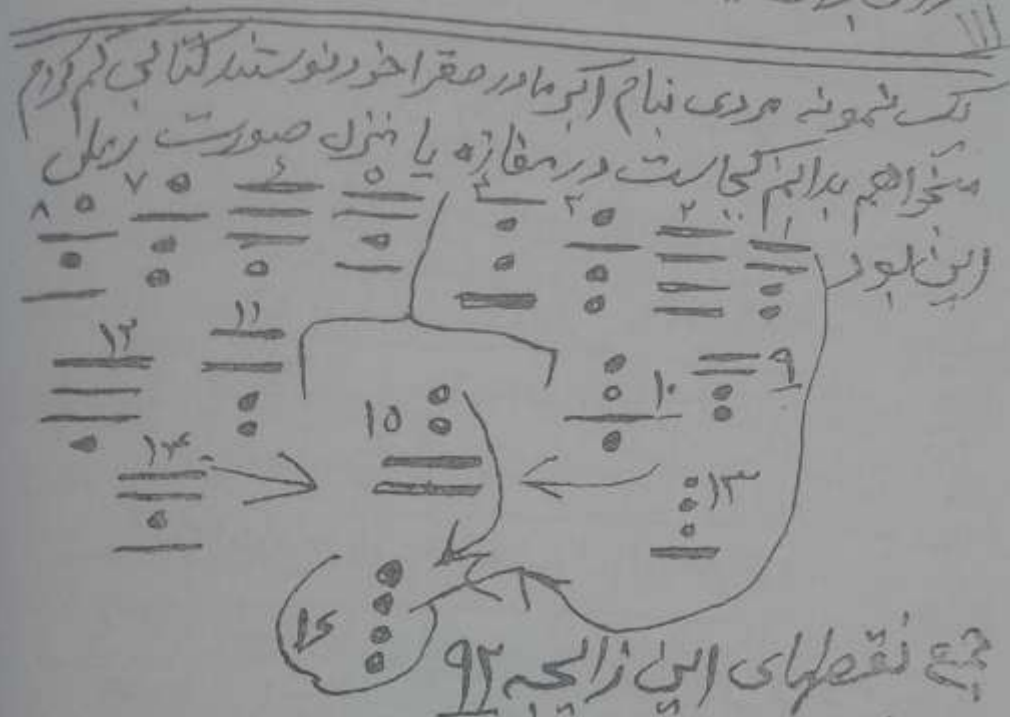 یک نمونه مردی بنام اکبر مادر صغرا خود نوستند کتابی گم کردم
میخواهم بدانم کجاست در مغازه یا منزل صورت رمل
این بود
۱ ۲ ۳ ۴ ۵ ۶ ۷ ۸
۹ ۱۰ ۱۱ ۱۲
۱۳ ۱۴ ۱۵
۱۶
جمع نقطهای این زایجه ۹۲